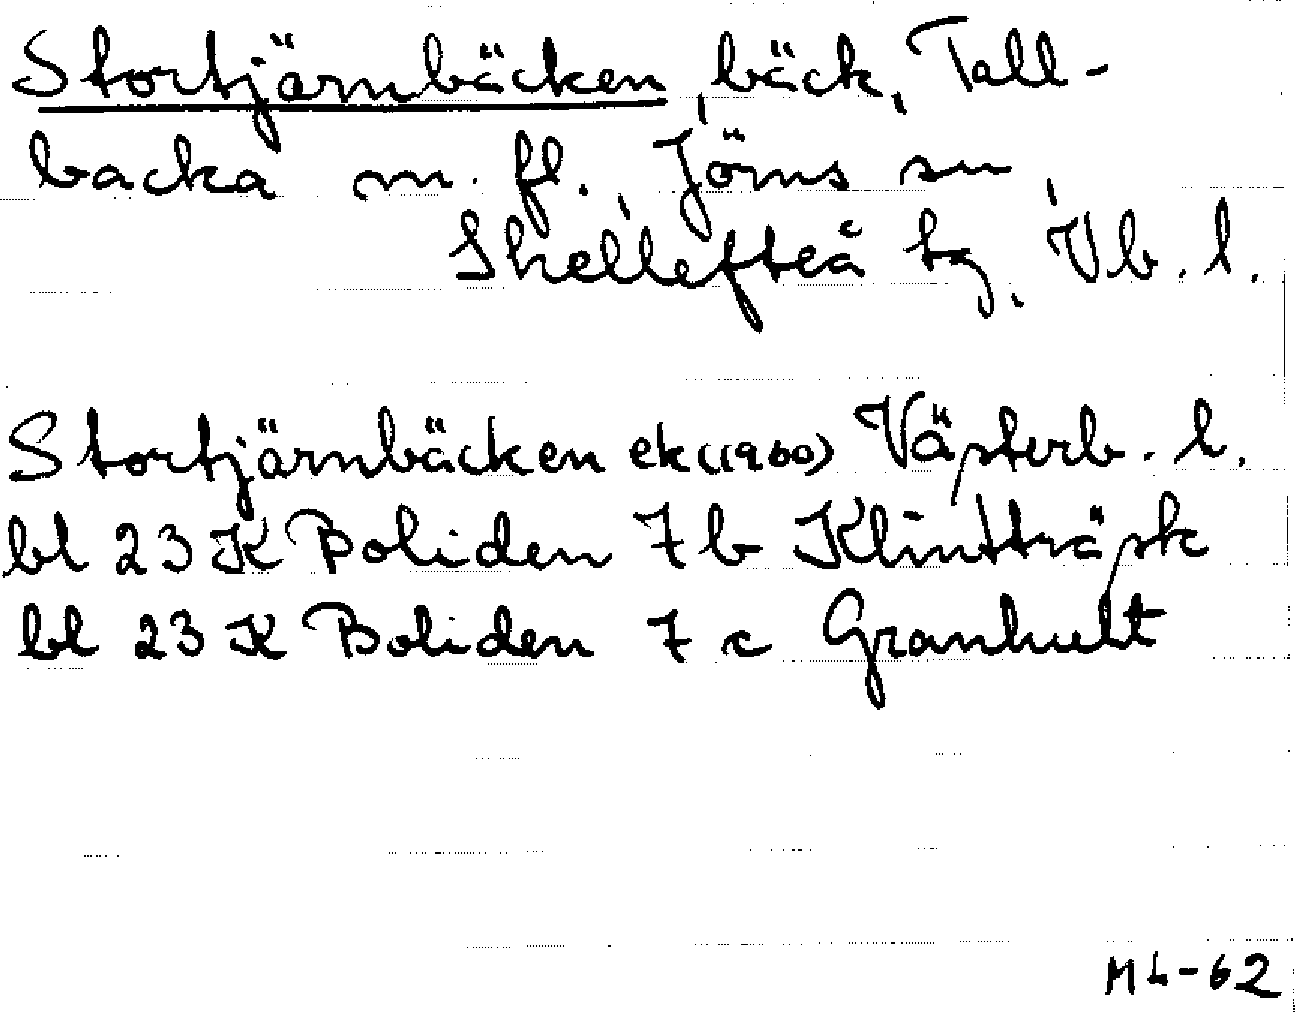 Stortjärnbäcken, bäck, Tall-
backa m. fl., Jörns sn,
Skellefteå tg, Vb. l.
Stortjärnbäcken ek (1960) Västerb. l.
bl 23 K Boliden 7 b Klintträsk
bl 23 K Boliden 7 c Granhult
ML-62